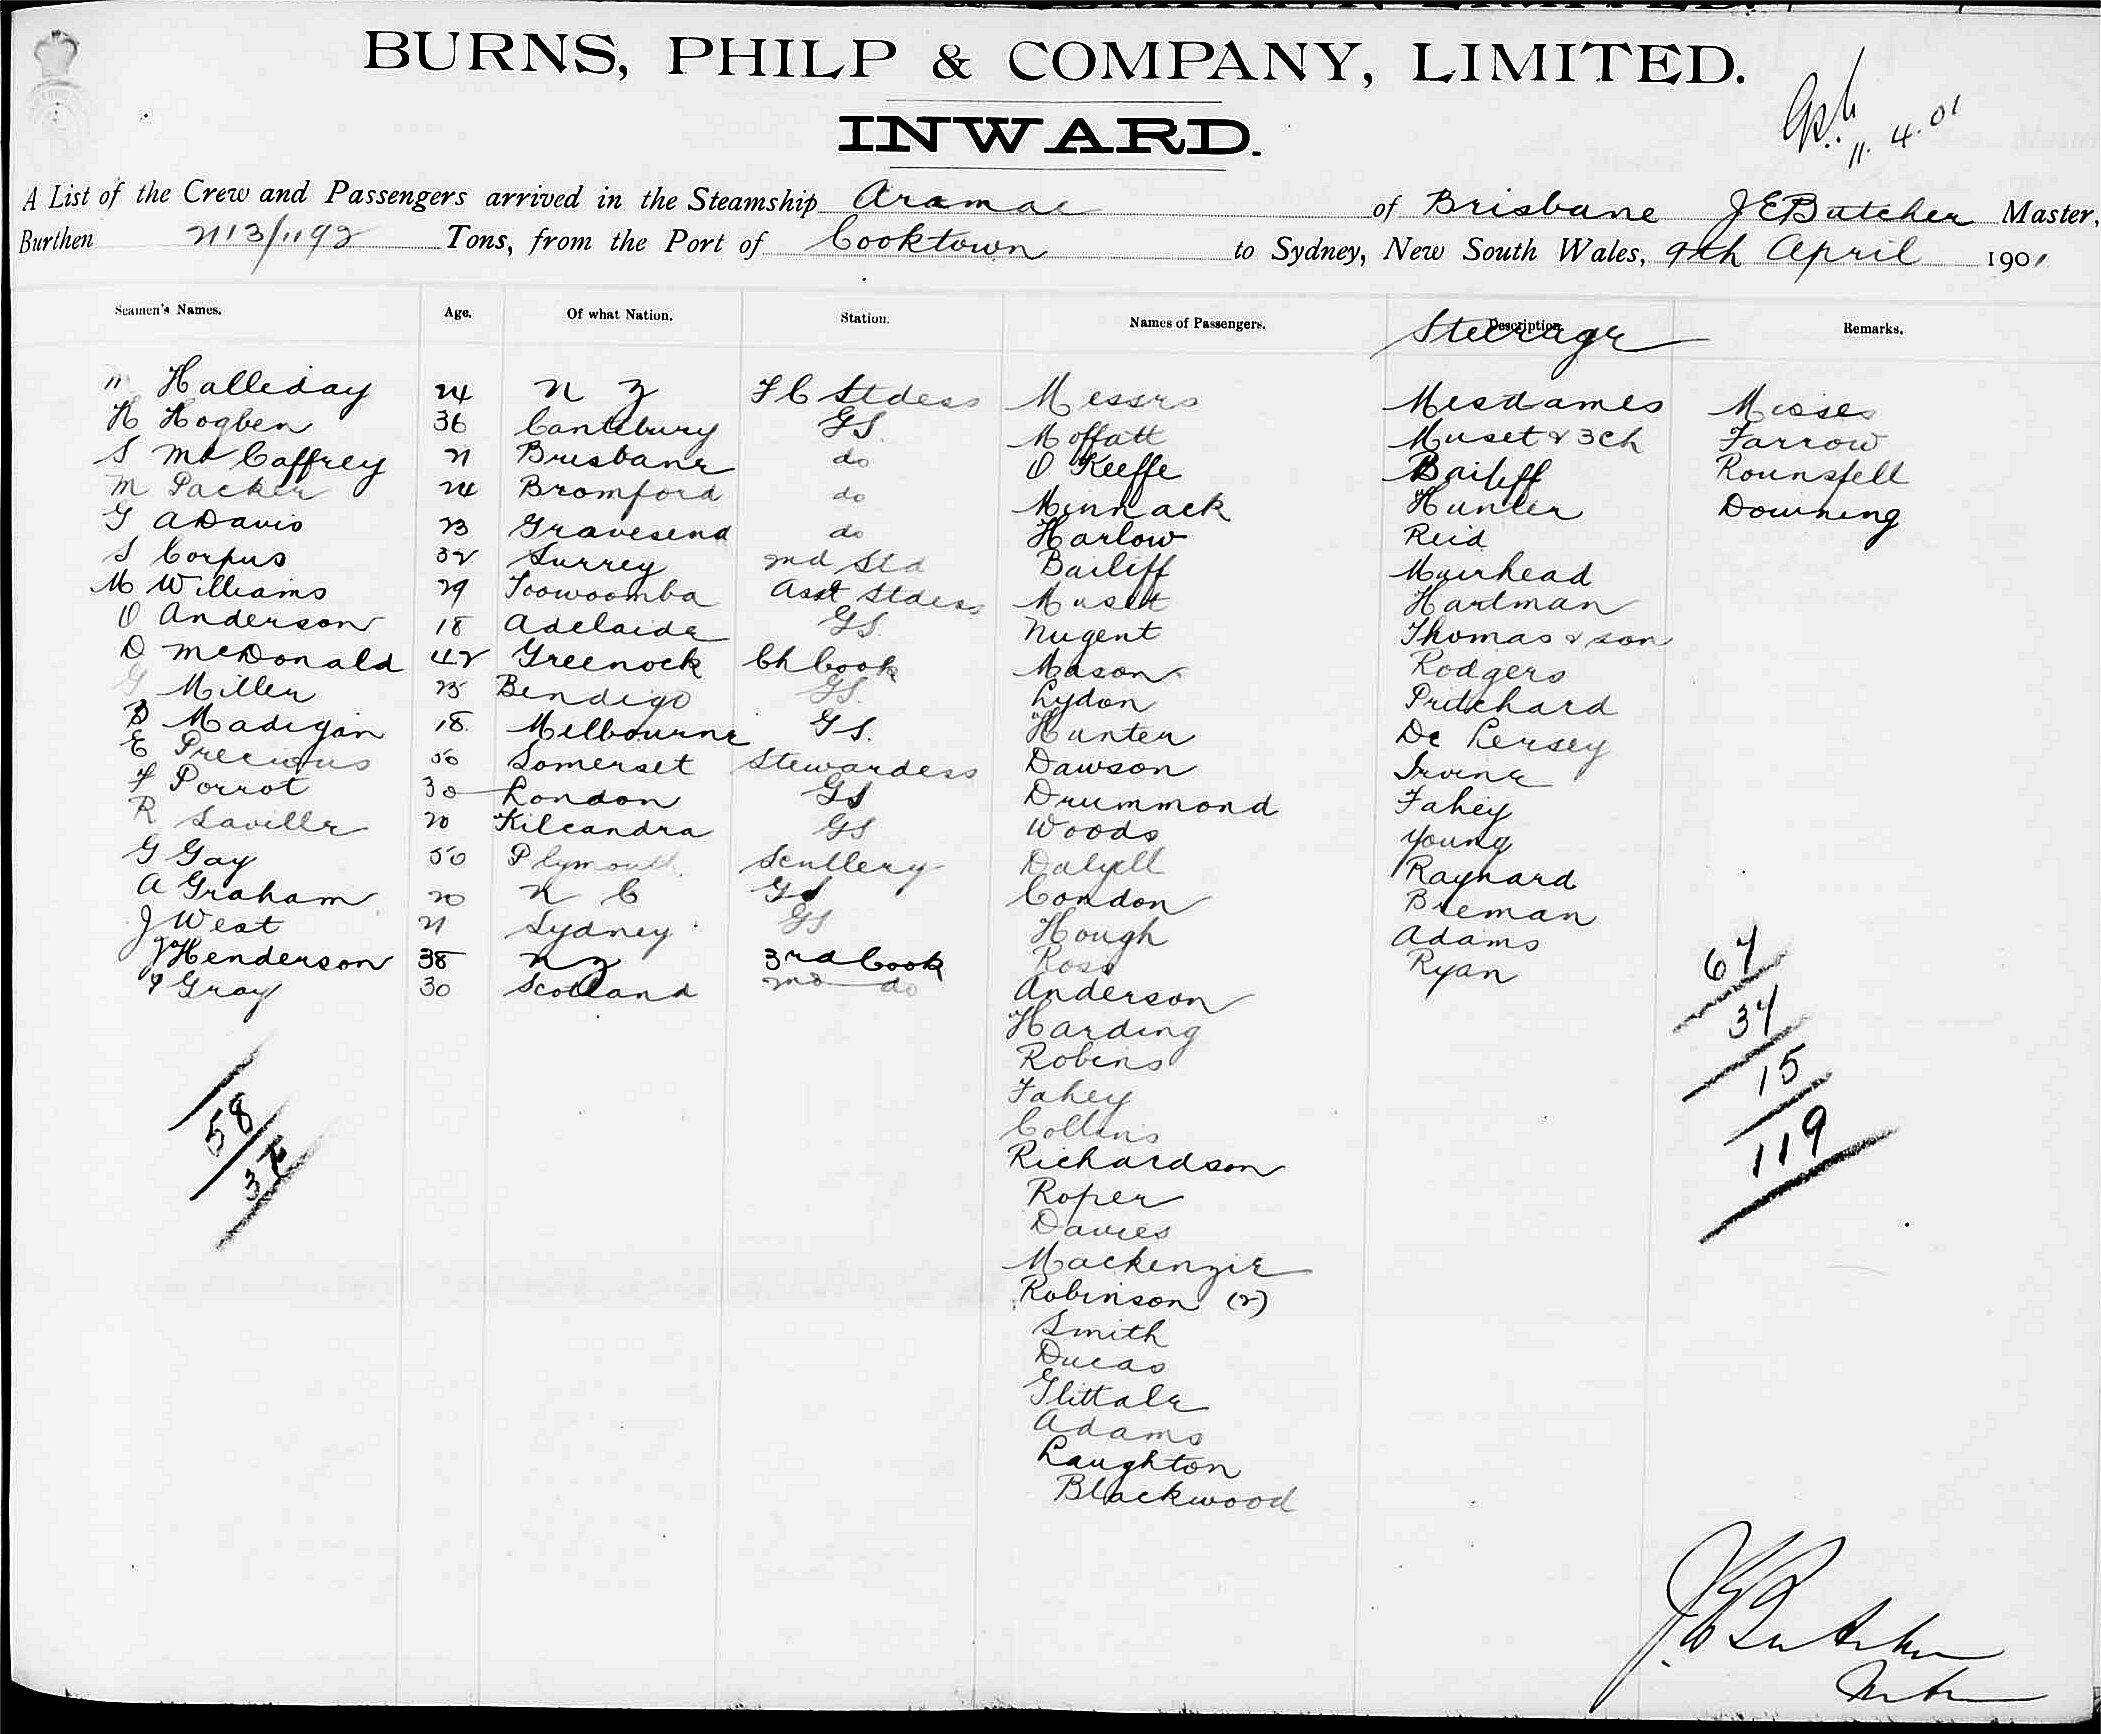 BURNS, PHILP & COMPANY, LIMITED.
INWARD.
11. 4. 01
A List of the Crew and Passengers arrived in the Steamship Aramac of Brisbane J E Butcher Master,
Burthen 2113/1192 Tons, from the Port of Cooktown to Sydney, New South Wales, 9th April 1901
Seamen's Names. Age. Of what Nation. Station. Names of Passengers. Description. Remarks.
Steerage
M Halliday 24 N Z F C Stdess Messrs Mesdames Misses
H Hogben 36 Cantebury GS. Moffatt Muset & 3 Ch Farrow
S McCaffrey 21 Brisbane do O'Keeffe Bailiff Rounsfell
M Packer 24 Bromford do Minnack Hunter Downing
G A Davis 23 Gravesend do Harlow Reid
S Corpus 32 Surrey 2nd Std Bailiff Muirhead
M Williams 29 Toowoomba Asst Stdess Muset Hartman
O Anderson 18 Adelaide GS. Nugent Thomas & son
D McDonald 42 Greenock Ch Cook Mason Rodgers
G Miller 25 Bendigo GS. Lydon Pritchard
B Madigan 18 Melbourne GS. Hunter De Lersey
E Precious 50 Somerset Stewardess Dawson Irvine
F Porrot 30 London GS Drummond Fahey
R Saville 20 Kileandra GS Woods Young
G Gay 50 Plymouth Scullery Dalyell Raynard
A Graham 20 N C GS Condon Breman
J West 21 Sydney GS Hough Adams
J Henderson 38 N Z 3rd Cook Ross Ryan
Gray 30 Scotland 2nd do Anderson
Harding
Robins
Fahey
Collins
Richardson
Roper
Davies
Mackenzie
Robinson (2)
Smith
Ducas
Glittale
Adams
Laughton
Blackwood
58
67
34
15
119
J E Butcher